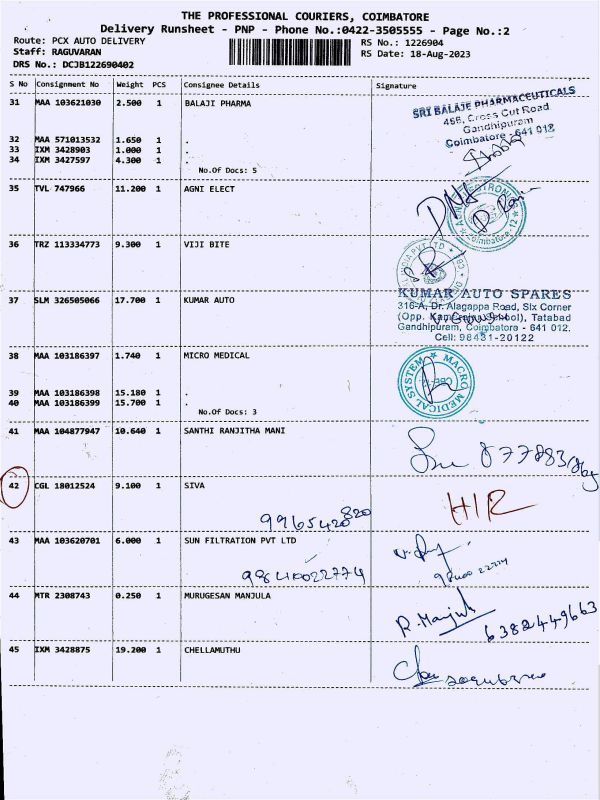 THE PROFESSIONAL COURIERS, COIMBATORE
Delivery Runsheet - PNP - Phone No.:0422-3505555 - Page No.:2
Route: PCX AUTO DELIVERY RS No.: 1226904
Staff: RAGUVARAN RS Date: 18-Aug-2023
DRS No.: DCJB122690402
S No Consignment No Weight PCS Consignee Details Signature
31 MAA 103621030 2.500 1 BALAJI PHARMA
SRI BALAJE PHARMACEUTICALS
458, Cross Cut Road
Gandhipuram
Coimbatore - 641 012
32 MAA 571013532 1.650 1 .
33 IXM 3428903 1.000 1 .
34 IXM 3427597 4.300 1 .
No.Of Docs: 5
35 TVL 747966 11.200 1 AGNI ELECT
36 TRZ 113334773 9.300 1 VIJI BITE
37 SLM 326505066 17.700 1 KUMAR AUTO
KUMAR AUTO SPARES
316-A, Dr. Alagappa Road, Six Corner
(Opp. School), Tatabad
Gandhipuram, Coimbatore - 641 012.
Cell: 98431-20122
38 MAA 103186397 1.740 1 MICRO MEDICAL
MACRO MEDICAL SYSTEM
39 MAA 103186398 15.180 1 .
40 MAA 103186399 15.700 1 .
No.Of Docs: 3
41 MAA 104877947 10.640 1 SANTHI RANJITHA MANI
42 CGL 18012524 9.100 1 SIVA
H/R
43 MAA 103620701 6.000 1 SUN FILTRATION PVT LTD
9840022774
44 MTR 2308743 0.250 1 MURUGESAN MANJULA
R. Manjula
6382449663
45 IXM 3428875 19.200 1 CHELLAMUTHU